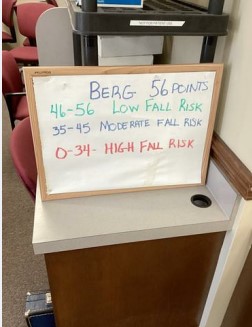 BERG 56 POINTS
46-56 LOW FALL RISK
35-45 MODERATE FALL RISK
0-34- HIGH FALL RISK